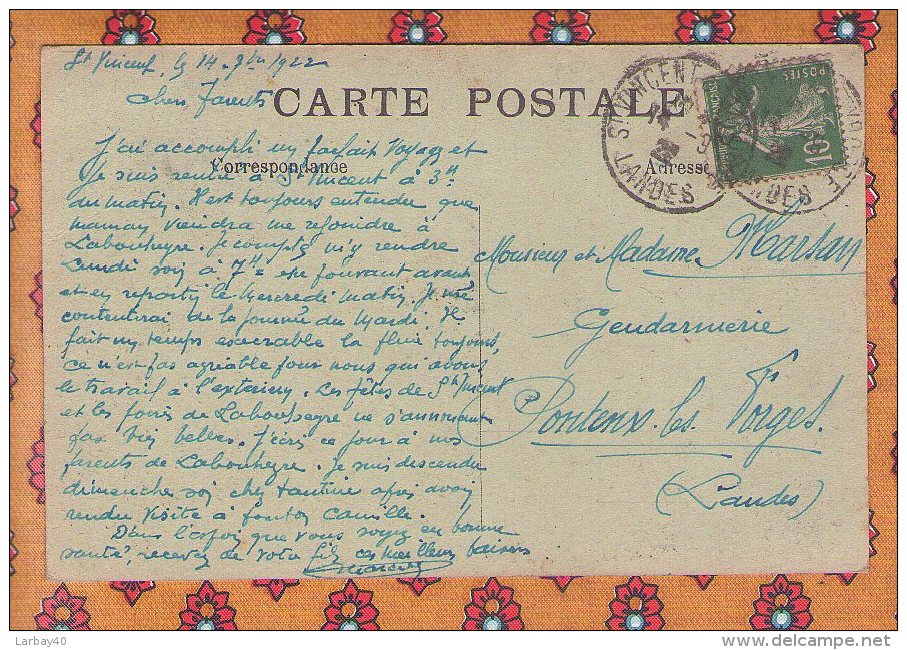 St Vincent, le 14 - 9bre 1922
Chers Parents
CARTE POSTALE
Correspondance
Adresse
ST VINCENT
LANDES
POSTES
10
J'ai accompli un parfait voyage et
je suis rentré à St Vincent à 3h
du matin. Il est toujours entendu que
maman viendra me rejoindre à
Labouheyre. Je compte m'y rendre
Lundi soir à 7h ne pouvant avant
et en repartir le Mercredi matin. Je me
contenterai de la journée du Mardi. Il
fait un temps execrable la pluie toujours,
ce n'est pas agréable pour nous qui avons
le travail à l'exterieur. Les fêtes de St Vincent
et les foires de Labouheyre ne s'annoncent
pas bien belles. J'écris ce jour à nos
parents de Labouheyre. Je suis descendu
dimanche soir chez tantine après avoir
rendu visite à tonton Camille.
Dans l'espoir que vous soyez en bonne
santé, recevez de votre fils ces meilleurs baisers
Monsieur et Madame Marsan
Gendarmerie
Pontenx les Forges
(Landes)
Larbay40
www.delcampe.net